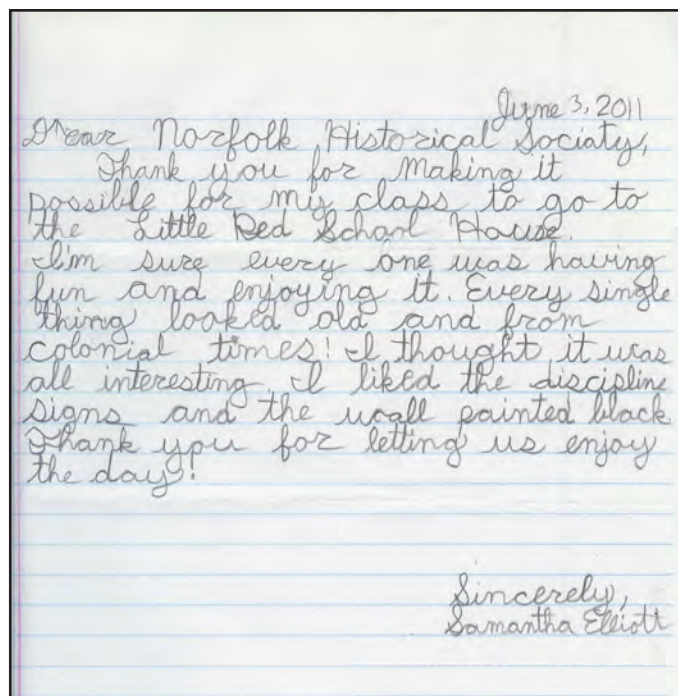 June 3, 2011
Dear Norfolk Historical Sociaty,
Thank you for making it
possible for my class to go to
the Little Red School House.
I'm sure every one was having
fun and enjoying it. Every single
thing looked old and from
colonial times! I thought it was
all interesting. I liked the discipline
signs and the wall painted black.
Thank you for letting us enjoy
the day!
Sincerely,
Samantha Elliott